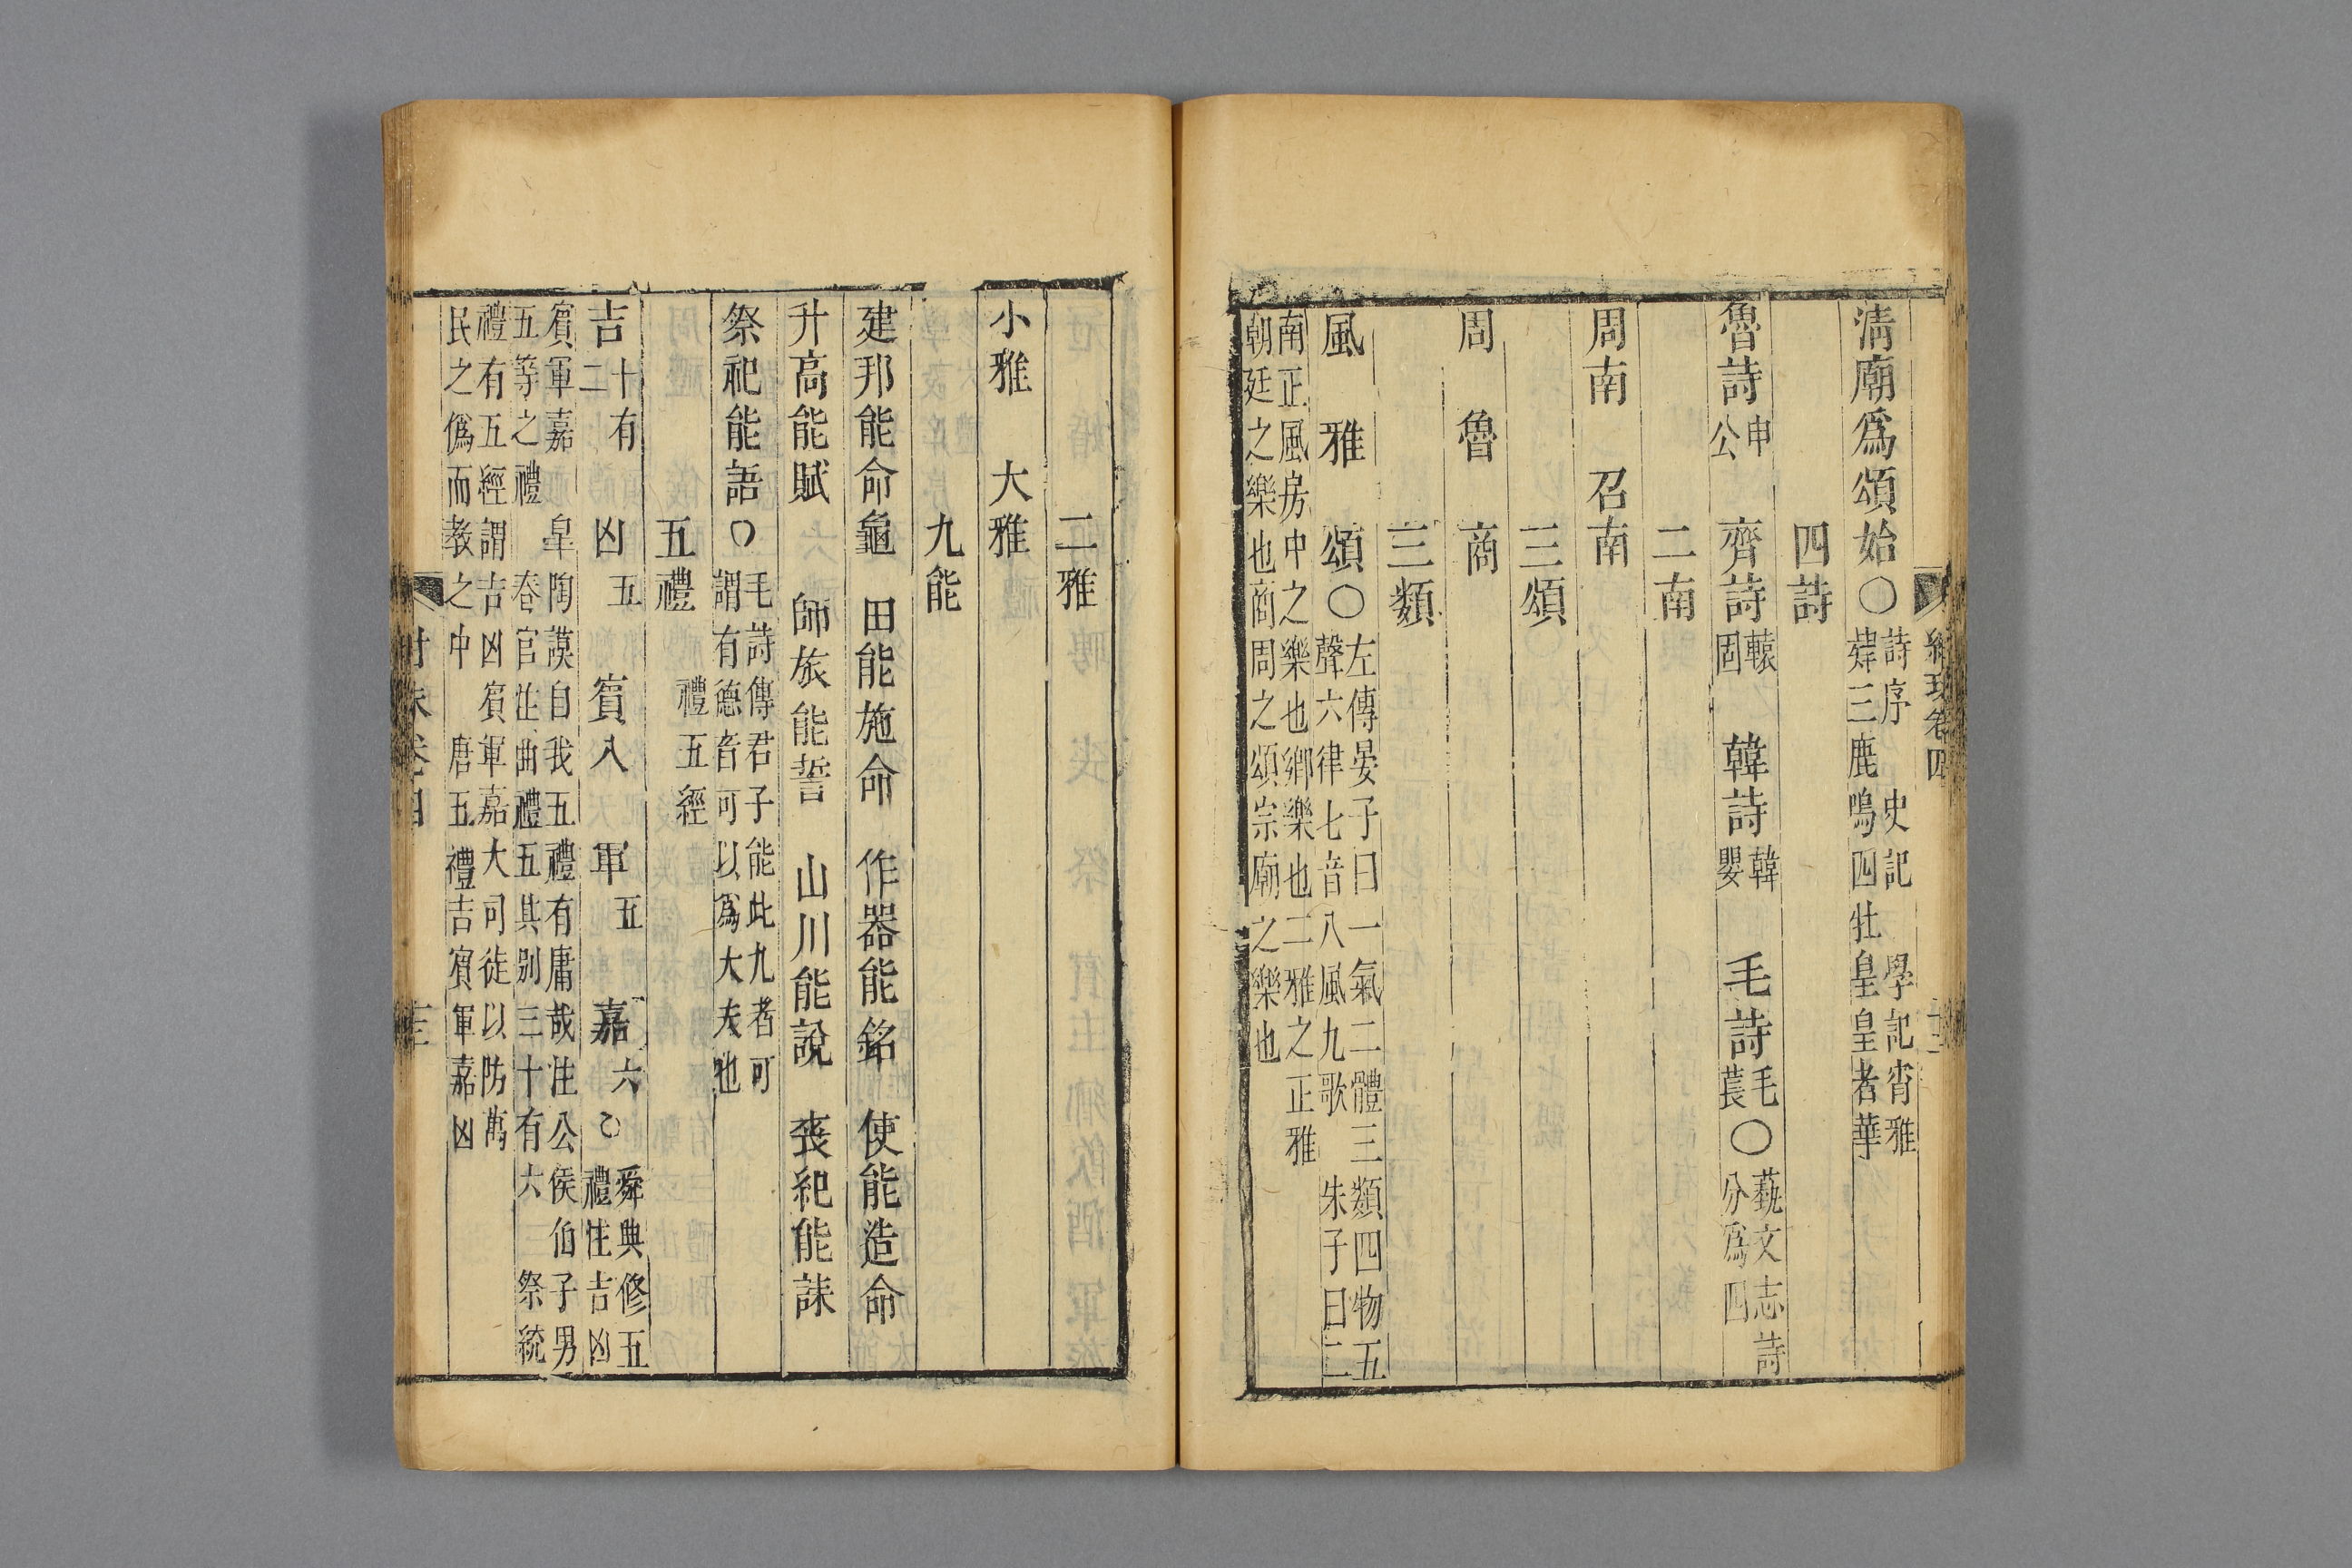 清廟爲頌始○詩序 史記 學記宵雅
肄三鹿鳴四牡皇皇者華
四詩
魯詩申公 齊詩轅固 韓詩韓嬰 毛詩毛萇○藝文志詩
分爲四
二南
周南 召南
三頌
周 魯 商
三類
風 雅 頌○左傳晏子曰一氣二體三類四物五
聲六律七音八風九歌 朱子曰二
南正風房中之樂也鄉樂也二雅之正雅
朝廷之樂也商周之頌宗廟之樂也
二雅
小雅 大雅
九能
建邦能命龜 田能施命 作器能銘 使能造命
升高能賦 師旅能誓 山川能說 喪紀能誄
祭祀能語○毛詩傳君子能此九者可
謂有德音可以爲大夫也
五禮 禮五經
吉十有二 凶五 賓八 軍五 嘉六○舜典修五
禮注吉凶
賓軍嘉 臯陶謨自我五禮有庸哉注公侯伯子男
五等之禮 春官注曲禮五其别三十有六 祭統
禮有五經謂吉凶賓軍嘉大司徒以防萬
民之僞而教之中 唐五禮吉賓軍嘉凶